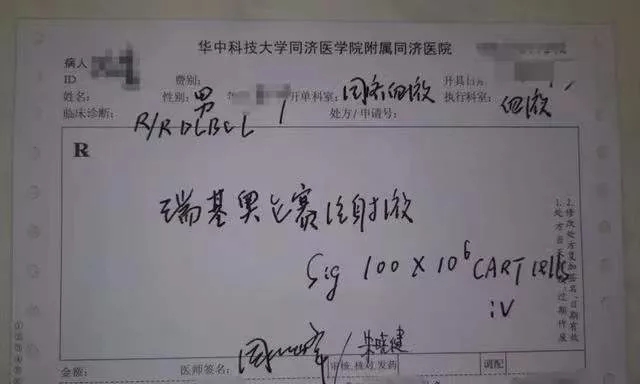 华中科技大学同济医学院附属同济医院
病人
ID 费别: 开具日
姓名: 性别: 男 开单科室: 同济血液 执行科室: 血液
临床诊断: R/R DLBCL 处方/申请号:
R
瑞基奥仑赛注射液
Sig 100 X 10⁶ CART cells
iv
2.修改处方复加签名、日期有效
1.处方当天 过期作废
金额: 医师签名: 朱晓健 审核,核对,发药 调配